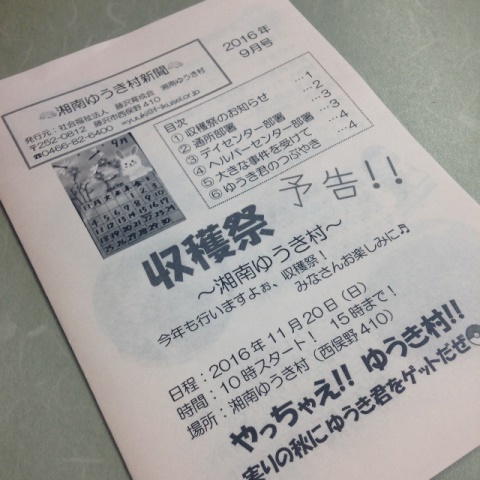 2016年
9月号
湘南ゆうき村新聞
発行元:社会福祉法人 藤沢育成会 湘南ゆうき村
〒252-0812 藤沢市西俣野410
☎0466-82-6400
目次
① 収穫祭のお知らせ …1
② 通所部署 …2
③ デイセンター部署 …3
④ ヘルパーセンター部署 …3
⑤ 大きな事件を受けて …4
⑥ ゆうき君のつぶやき …4
9月
日月火水木金土
収穫祭 予告!!
~湘南ゆうき村~
今年も行いますよぉ、収穫祭!
みなさんお楽しみに♬
日程:2016年11月20日(日)
時間:10時スタート! 15時まで!
場所:湘南ゆうき村(西俣野410)
やっちゃえ!! ゆうき村!!
実りの秋にゆうき君をゲットだぜ